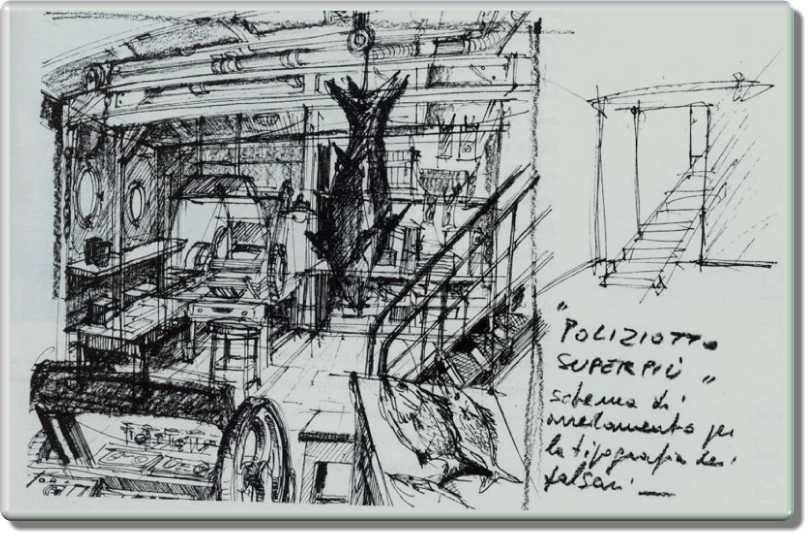 "POLIZIOTTO
SUPERPIÙ"
schema di
arredamento per
la tipografia dei
falsari